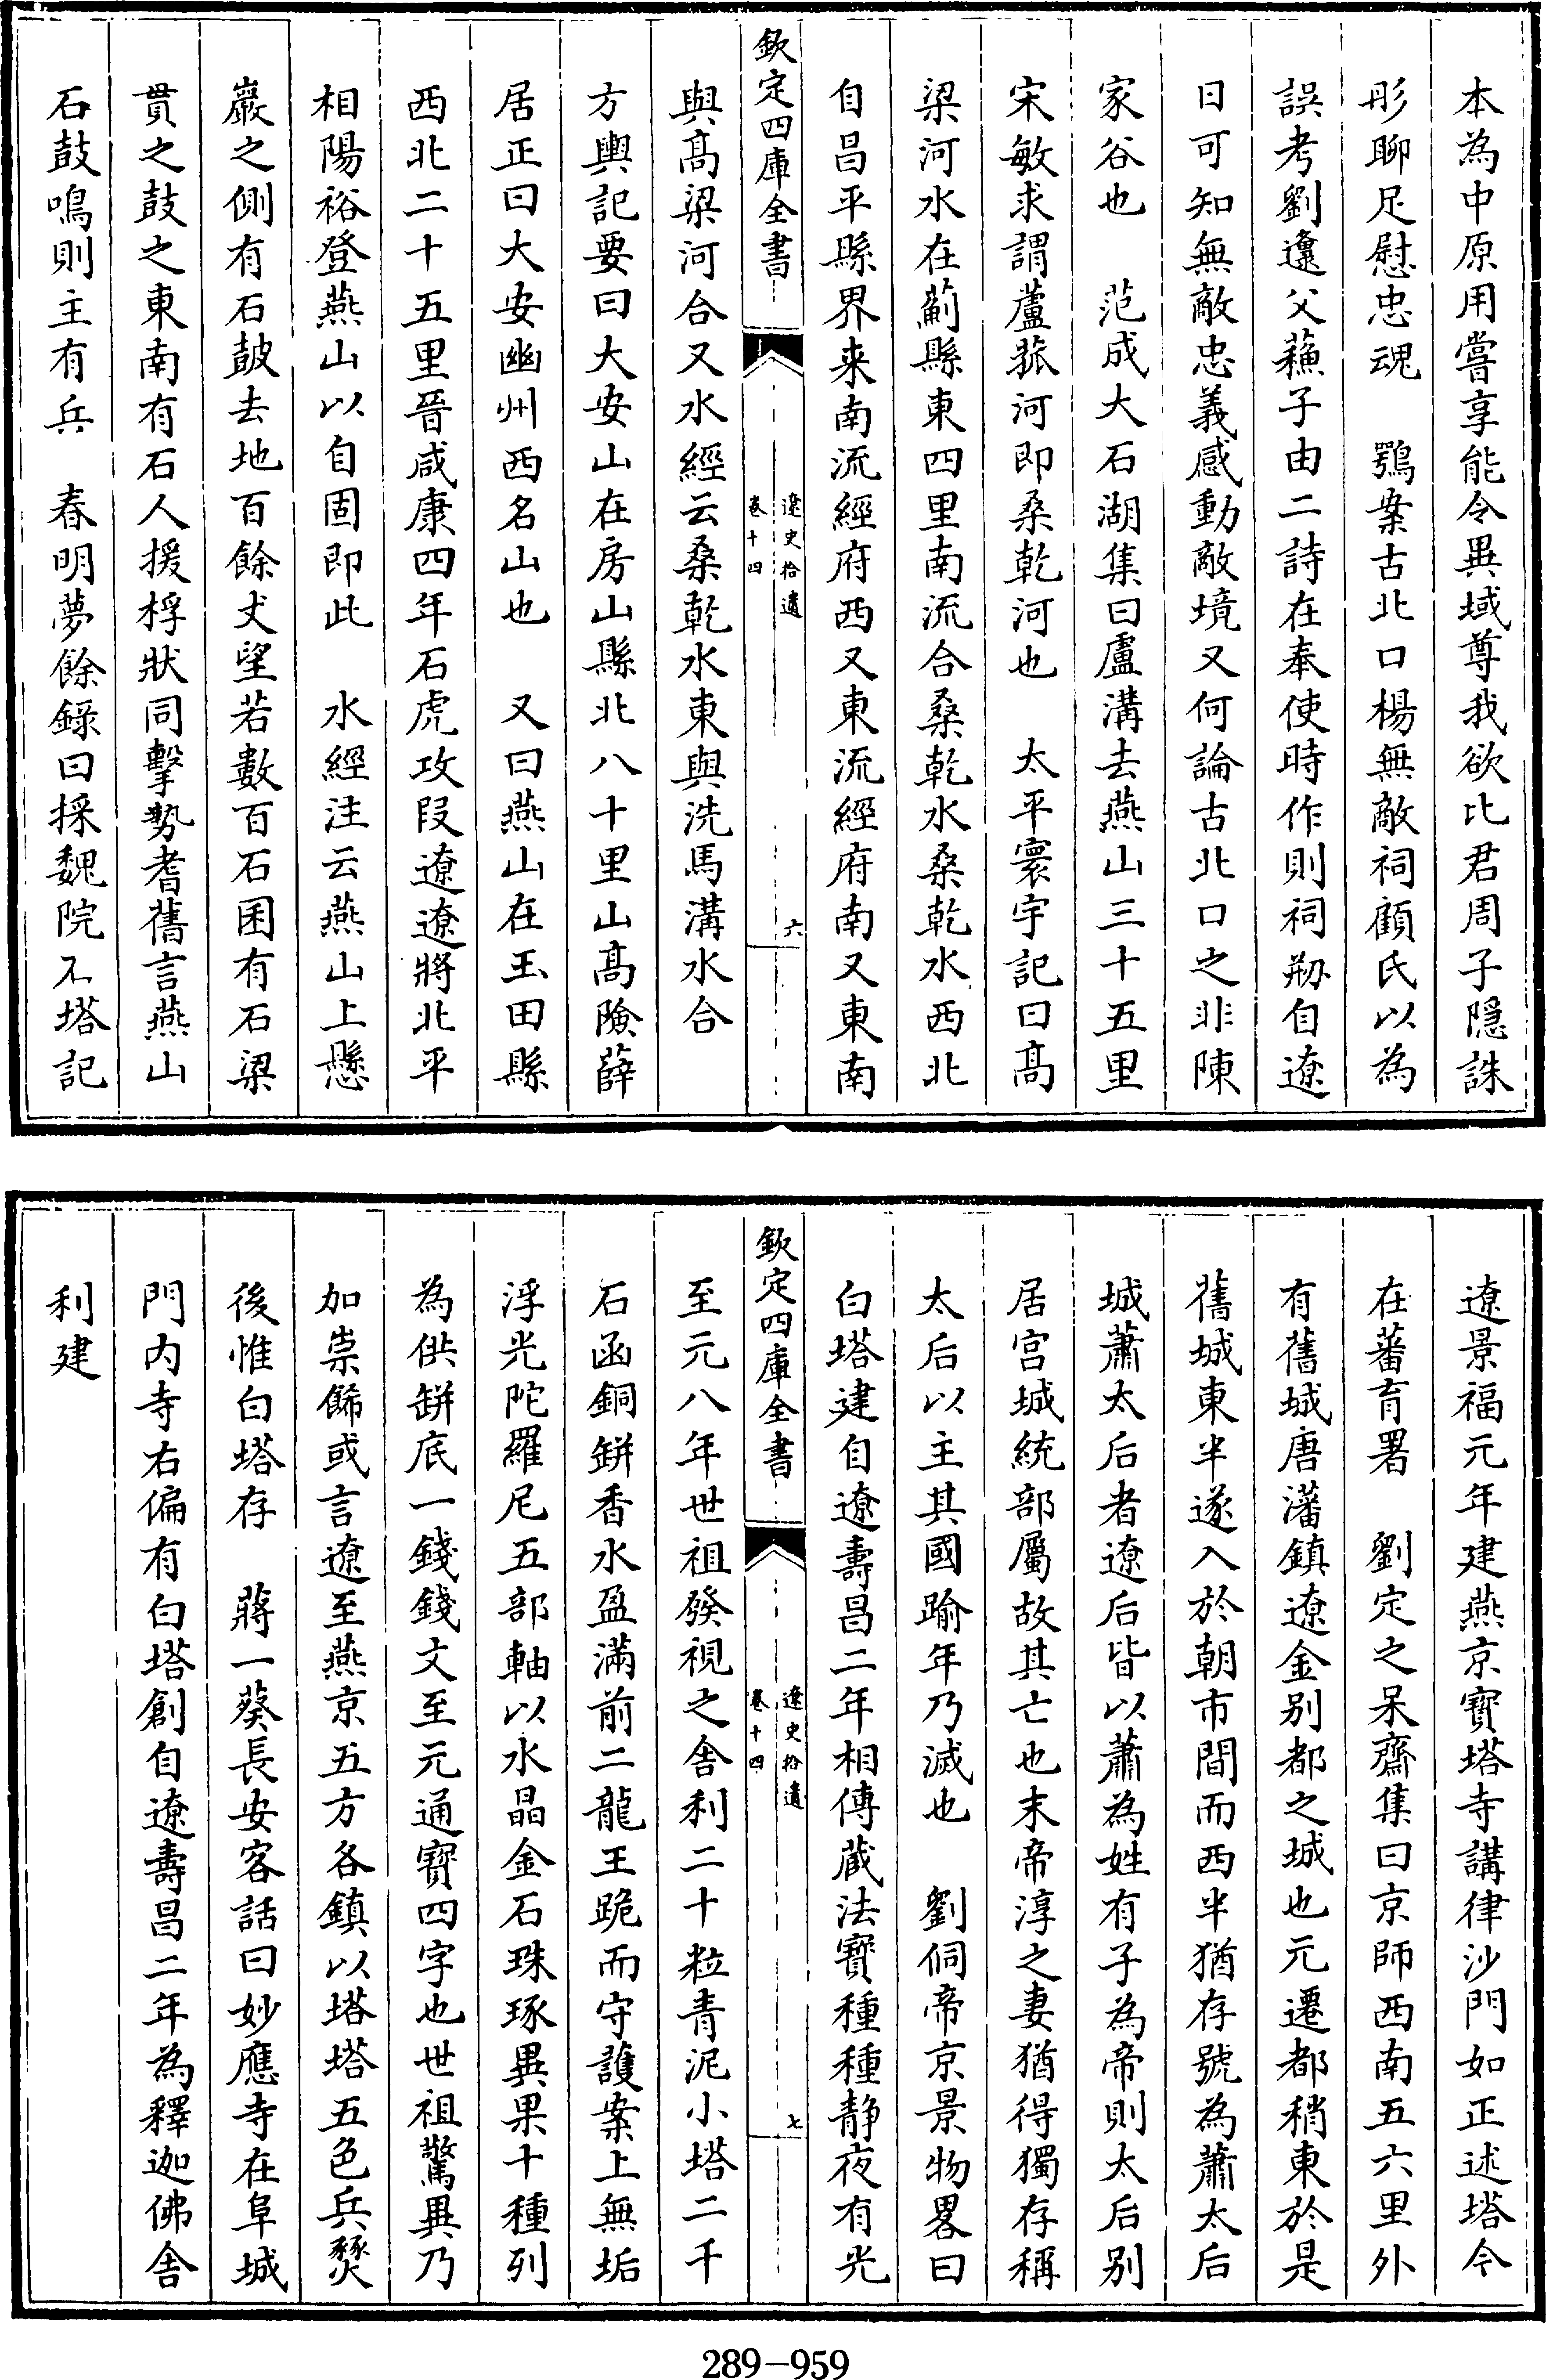 本為中原用嘗享能令異域尊我欲比君周子隠誅
彤聊足慰忠魂　鶚案古北口楊無敵祠顧氏以為
誤考劉䢿父蘓子由二詩在奉使時作則祠剙自遼
日可知無敵忠義感動敵境又何論古北口之非陳
家谷也　范成大石湖集曰盧溝去燕山三十五里
宋敏求謂蘆菰河即桑乾河也　太平寰宇記曰髙
梁河水在薊縣東四里南流合桑乾水桑乾水西北
自昌平縣界来南流經府西又東流經府南又東南
欽定四庫全書
遼史拾遺
卷十四
六
與髙梁河合又水經云桑乾水東與洗馬溝水合
方輿記要曰大安山在房山縣北八十里山髙險薛
居正曰大安幽州西名山也　又曰燕山在玉田縣
西北二十五里晉咸康四年石虎攻段遼遼將北平
相陽裕登燕山以自固即此　水經注云燕山上懸
巖之側有石鼓去地百餘丈望若數百石囷有石梁
貫之鼓之東南有石人援桴狀同擊勢耆舊言燕山
石鼓鳴則主有兵　春明夢餘錄曰採魏院石塔記
遼景福元年建燕京寳塔寺講律沙門如正述塔今
在蕃育署　劉定之呆齋集曰京師西南五六里外
有舊城唐藩鎮遼金别都之城也元遷都稍東於是
舊城東半遂入於朝市間而西半猶存號為蕭太后
城蕭太后者遼后皆以蕭為姓有子為帝則太后别
居宫城統部屬故其亡也末帝淳之妻猶得獨存稱
太后以主其國踰年乃滅也　劉侗帝京景物畧曰
白塔建自遼壽昌二年相傳蔵法寳種種静夜有光
欽定四庫全書
遼史拾遺
卷十四
七
至元八年世祖發視之舎利二十粒青泥小塔二千
石函銅缾香水盈滿前二龍王跪而守䕶案上無垢
浮光陀羅尼五部軸以水晶金石珠琢異果十種列
為供缾底一錢錢文至元通寳四字也世祖驚異乃
加崇餙或言遼至燕京五方各鎮以塔塔五色兵燹
後惟白塔存　蔣一葵長安客話曰妙應寺在阜城
門内寺右偏有白塔創自遼壽昌二年為釋迦佛舎
利建
289-959